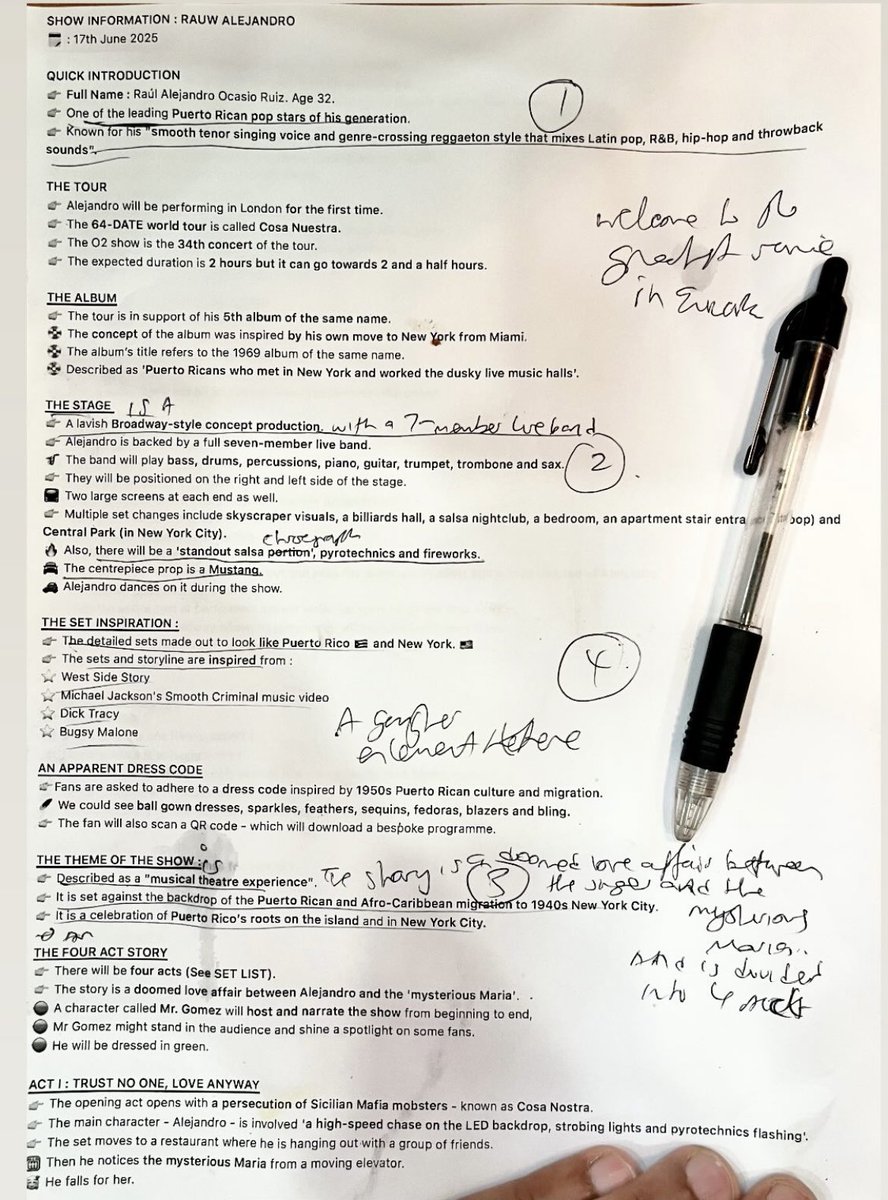 SHOW INFORMATION : RAUW ALEJANDRO
: 17th June 2025
QUICK INTRODUCTION
Full Name : Raúl Alejandro Ocasio Ruiz. Age 32.
1
One of the leading Puerto Rican pop stars of his generation.
Known for his "smooth tenor singing voice and genre-crossing reggaeton style that mixes Latin pop, R&B, hip-hop and throwback
sounds".
THE TOUR
Alejandro will be performing in London for the first time.
welcome to
The 64-DATE world tour is called Cosa Nuestra.
The O2 show is the 34th concert of the tour.
The expected duration is 2 hours but it can go towards 2 and a half hours.
in
THE ALBUM
The tour is in support of his 5th album of the same name.
The concept of the album was inspired by his own move to New York from Miami.
The album's title refers to the 1969 album of the same name.
Described as 'Puerto Ricans who met in New York and worked the dusky live music halls'.
THE STAGE IS A
A lavish Broadway-style concept production. with a 7-member live band
Alejandro is backed by a full seven-member live band.
2
The band will play bass, drums, percussions, piano, guitar, trumpet, trombone and sax.
They will be positioned on the right and left side of the stage.
Two large screens at each end as well.
Multiple set changes include skyscraper visuals, a billiards hall, a salsa nightclub, a bedroom, an apartment stair entra oop) and
Central Park (in New York City).
Also, there will be a 'standout salsa portion', pyrotechnics and fireworks.
The centrepiece prop is a Mustang.
Alejandro dances on it during the show.
THE SET INSPIRATION :
The detailed sets made out to look like Puerto Rico 🇵🇷 and New York. 🇺🇸
4
The sets and storyline are inspired from :
West Side Story
Michael Jackson's Smooth Criminal music video
Dick Tracy
A
Bugsy Malone
element
AN APPARENT DRESS CODE
Fans are asked to adhere to a dress code inspired by 1950s Puerto Rican culture and migration.
We could see ball gown dresses, sparkles, feathers, sequins, fedoras, blazers and bling.
The fan will also scan a QR code - which will download a bespoke programme.
THE THEME OF THE SHOW : is
Described as a "musical theatre experience". The story is a doomed love affair between
3
the singer and the
It is set against the backdrop of the Puerto Rican and Afro-Caribbean migration to 1940s New York City.
mysterious
It is a celebration of Puerto Rico's roots on the island and in New York City.
Maria..
THE FOUR ACT STORY
and is divided
There will be four acts (See SET LIST).
into 4 acts
The story is a doomed love affair between Alejandro and the 'mysterious Maria'. .
A character called Mr. Gomez will host and narrate the show from beginning to end,
Mr Gomez might stand in the audience and shine a spotlight on some fans.
He will be dressed in green.
ACT I : TRUST NO ONE, LOVE ANYWAY
The opening act opens with a persecution of Sicilian Mafia mobsters - known as Cosa Nostra.
The main character - Alejandro - is involved 'a high-speed chase on the LED backdrop, strobing lights and pyrotechnics flashing'.
The set moves to a restaurant where he is hanging out with a group of friends.
Then he notices the mysterious Maria from a moving elevator.
He falls for her.